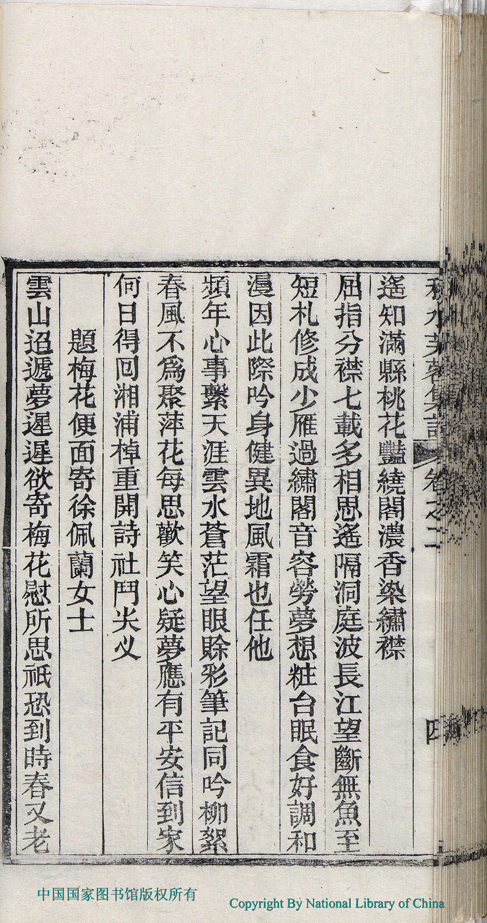 秋水芙蓉集詩 卷之二 四
遙知滿縣桃花豔繞閣濃香染繡襟
屈指分襟七載多相思遙隔洞庭波長江望斷無魚至
短札修成少雁過繡閣音容勞夢想粧台眠食好調和
漫因此際吟身健異地風霜也任他
頻年心事繫天涯雲水蒼茫望眼賒彩筆記同吟柳絮
春風不為聚萍花每思歡笑心疑夢應有平安信到家
何日得回湘浦棹重開詩社鬥尖义
題梅花便面寄徐佩蘭女士
雲山迢遞夢遲遲欲寄梅花慰所思祇恐到時春又老
中国国家图书馆版权所有
Copyright By National Library of China